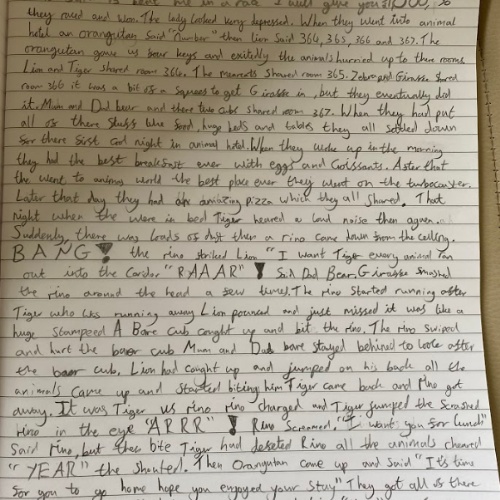 me in a race I will give you £1,500, so
they raced and won. The lady looked very depressed. When they went into animal
hotel an orangutan said "number" then Lion said 364, 365, 366 and 367. The
orangutan gave us four keys and exitedly the animals hurried up to there rooms
Lion and Tiger shared room 364. The meerkats shared room 365. Zebra and Giraffe shared
room 366 it was a bit of a squeeze to get Giraffe in, but they eventually did
it. Mum and Dad bear and there two cubs shared room 367. When they had put
all of there stuff like food, huge beds and tables they all settled down
for there first cool night in animal hotel. When they woke up in the morning
they had the best breakfast ever with eggs and Croissants. After that
the went to animal world the best place ever they went on the turbocoaster.
Later that day they had an amazing pizza which they all shared. That
night when the were in bed Tiger heared a loud noise then agen.
Suddenly, there was loads of dust then a rino came down from the ceiling.
BANG! the rino striked Lion "I want Tiger every animal ran
out into the coridor "RAAAR"! Said Dad Bear, Giraffe smashed
the rino around the head a few times. The rino started running after
Tiger who was running away Lion pounced and just missed it was like a
huge stampeed A Bare Cub caught up and bit the rino. The rino swiped
and hurt the baer cub Mum and Dad bare stayed behined to look after
the baer cub. Lion had caught up and jumped on his back all the
animals came up and started biting him Tiger came back and Rino got
away. It was Tiger vs rino rino charged and Tiger jumped the scrashed
rino in the eye "ARRR"! Rino Screamed, "I want you for lunch"
said rino, but the bite Tiger had defeted Rino all the animals cheared
"YEAR" the shouted. Then Orangutan came up and said "It's time
for you to go home hope you enjoyed your stay" They got all of there